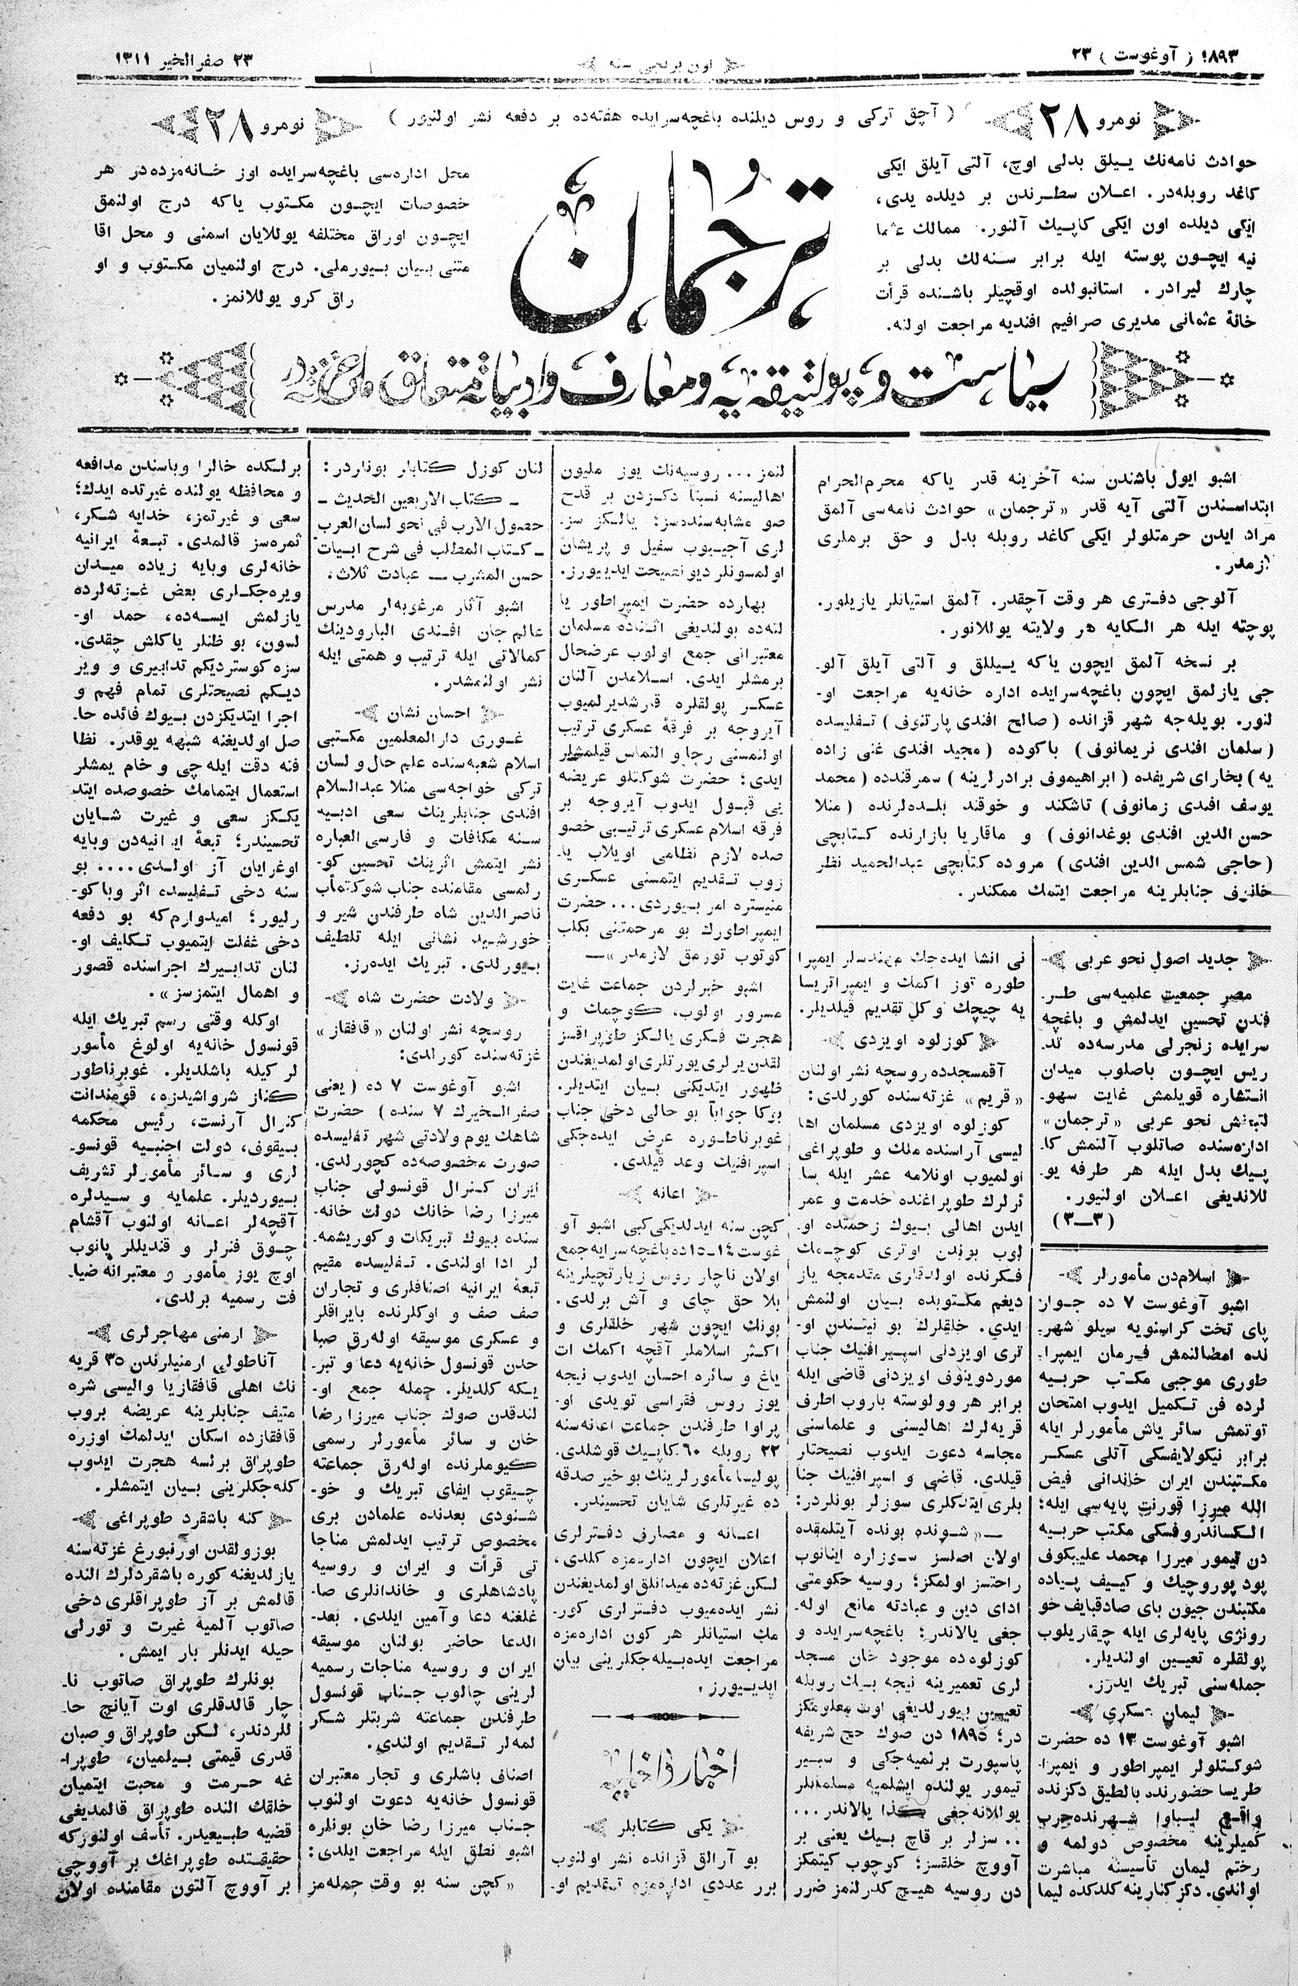 ۱۸۹۳ ( آوغوست ) ۲۳
اون برنجی سنه
۲۳ صفر الخیر ۱۳۱۱
نومرو ۲۸
( آچق ترکی و روس دیلنده باغچه‌سرایده هفته‌ده بر دفعه نشر اولنیور )
نومرو ۲۸
حوادث نامه‌نك ییلق بدلی اوچ، آلتی آیلق ایکی
کاغد روبله‌در. اعلان سطرندن بر دیلده یدی،
ایکی دیلده اون ایکی کاپیك آلنور. ممالك عثما
نیه ایچون پوسته ایله برابر سنه‌لك بدلی بر
چارك لیرادر. استانبولده اوقچیلر باشنده قرأت
خانهٔ عثمانی مدیری صرافیم افندیه مراجعت اولنه.
ترجمان
محل اداره‌سی باغچه‌سرایده اوز خانه‌مزده‌در هر
خصوصات ایچون مکتوب یاکه درج اولنمق
ایچون اوراق مختلفه یوللایان اسمنی و محل اقا
متنی بیان بیورملی. درج اولنمیان مکتوب و او
راق کرو یوللانمز.
سیاست و پولتیقه‌یه و معارف و ادبیاته متعلق
اشبو ایول باشندن سنه آخرینه قدر یاکه محرم‌الحرام
ابتداسندن آلتی آیه قدر «ترجمان» حوادث نامه‌سی آلمق
مراد ایدن حرمتلولر ایکی کاغد روبله بدل و حق برملری
لازمدر.
آلوجی دفتری هر وقت آچقدر. آلمق استیانلر یازیلور.
پوچته ایله هر الکایه هر ولایته یوللانور.
بر نسخه آلمق ایچون یاکه ییللق و آلتی آیلق آلو-
جی یازلمق ایچون باغچه‌سرایده اداره خانه‌یه مراجعت او-
لنور. بویله‌جه شهر قزانده (صالح افندی پارتنوف) تفلیسده
(سلمان افندی نریمانوف) باکوده (مجید افندی غنی زاده
یه) بخارای شریفده (ابراهیموف برادرلرینه) سمرقندده (محمد
یوسف افندی زمانوف) تاشکند و خوقند بلده‌لرنده (منلا
حسن الدین افندی بوغدانوف) و ماقاریا بازارنده کتابچی
(حاجی شمس الدین افندی) مروده کتابچی عبدالحمید نظر
جنابلرینه مراجعت ایتمك ممکندر.
جدید اصول نحو عربی
مصر جمعیت علمیه‌سی طر-
فندن تحسین ایدلمش و باغچه
سرایده زنجرلی مدرسه‌ده تد-
ریس ایچون باصلوب میدان
انتشاره قویلمش غایت سهو-
نحو عربی «ترجمان»
اداره‌سنده صاتلوب آلنمش کا-
پیك بدل ایله هر طرفه یو-
للاندیغی اعلان اولنیور.
(۳—۳)
اسلام‌دن مأمورلر
اشبو آوغوست ۷ ده جوار
پای تخت کراسنویه سیلو شهر-
لده امضالنمش فرمان ایمپرا-
طوری موجبی مکتب حربیه
لرده فن تکمیل ایدوب امتحان
توتمش سائر یاش مأمورلر ایله
برابر نیکولایفسکی آتلی عسکر
مکتبندن ایران خاندانی فیض
الله میرزا قورنت پایه‌سی ایله؛
الکساندروفسکی مکتب حربیه
دن تیمور میرزا محمد علیبکوف
پودپوروچیك و کییف پیاده
مکتبندن جیون بای صادقبایف خو
رونژی پایه‌لری ایله چیقاریلوب
پولقلره تعیین اولندیلر.
جمله‌سنی تبریك ایدرز.
لیمان عسکری
اشبو آوغوست ۱۳ ده حضرت
شوکتلولر ایمپراطور و ایمپرا-
طریسا حضورنده بالطیق دکزنده
واقع لیباوا شهرنده حرب
کمیلرینه مخصوص دولمه و
رختم لیمان تأسیسنه مباشرت
اولندی. دکز کنارینه کلدکده لیما
نی انشا ایده‌جك مهندسلر ایمپرا
طوره توز اکمك و ایمپراتریسا
یه چیچك و کل تقدیم قیلدیلر.
کوزلوه اویزدی
آقمسجدده روسچه نشر اولنان
«قریم» غزته‌سنده کورلدی:
کوزلوه اویزدی مسلمان اها
لیسی آراسنده ملك و طوپراغی
اولمیوب اونلامه عشر ایله سا-
ئرلرك طوپراغنده خدمت و عمر
ایدن اهالی بیوك زحمتده او-
لوب بوندن اوتری کوچمك
فکرنده اولدقلری مقدمجه یاز
دیغم مکتوبده بیان اولنمش
ایدی. خلقلرك بو نیتندن او-
تری اویزدنی اسپیرافنیك جناب
موردوینوف اویزدنی قاضی ایله
برابر هر وولوسته باروب اطرف
قریه‌لرك اهالیسنی و علماسنی
مجلسه دعوت ایدوب نصیحتلر
قیلدی. قاضی و اسپرافنیك جنا
بلری ایتدکلری سوزلر بونلردر:
—«شونده بونده آیتلمقده
اولان اصلسز سوزلره اینانوب
راحتسز اولمکز؛ روسیه حکومتی
ادای دین و عبادته مانع اوله-
جغی یالاندر؛ باغچه‌سرایده و
کوزلوه‌ده موجود خان مسجد
لری تعمیرینه نیجه بیك روبله
تعیین بیورلدیغی اوت معلومکز
در؛ ۱۸۹۵ دن صوك حج شریفه
پاسپورت برلمیه‌جکی و سبیر
تیمور یولنده ایشلمیه مسلمانلر
یوللانه‌جغی کذا یالاندر...
.. سزلر بر قاچ بیك یعنی بر
آووچ خلقسز؛ کوچوب کیتمکز
دن روسیه هیچ کدرلنمز ضرر
لنمز... روسیه‌نك یوز ملیون
اهالیسنه نسبتا دکزدن بر قدح
صو مشابه‌سنده‌سز؛ یالکز سز-
لری آجیوب سفیل و پریشان
اولمسونلر دیو نصیحت ایدییورز.
بهارده حضرت ایمپراطور یا
لته‌ده بولندیغی اثناده مسلمان
معتبرانی جمع اولوب عرضحال
برمشلر ایدی. اسلامدن آلنان
عسکر پولقلره قارشدیرلمیوب
آیروجه بر فرقهٔ عسکری ترتیب
اولنمسنی رجا و التماس قیلمشلر
ایدی؛ حضرت شوکتلو عریضه
یی قبول ایدوب آیروجه بر
فرقه اسلام عسکری ترتیبی خصو
صده لازم نظامی اویلاب یا-
زوب تقدیم ایتمسنی عسکری
منیستره امر بیوردی... حضرت
ایمپراطورك بو مرحمتنی بکلب
کوتوب تورمق لازمدر»—
اشبو خبرلردن جماعت غایت
مسرور اولوب، کوچمك و
هجرت فکری یالکز طوپراقسز
لقدن یرلری یورتلری اولمدیغندن
ظهور ایتدیکنی بیان ایتدیلر.
بوکا جواباً بو حالی دخی جناب
غوبرناطوره عرض ایده‌جکی
اسپرافنیك وعد قیلدی.
اعانه
کچن سنه ایدلدیکی کبی اشبو آو
غوست ۱۴-۱۵ ده باغچه‌سرایه جمع
اولان ناچار روس زیارتچیلرینه
بلا حق چای و آش برلدی.
بونك ایچون شهر خلقلری و
اکثر اسلاملر آقچه اکمك ات
یاغ و سائره احسان ایدوب نیجه
یوز روس فقراسی تویدی او-
پراوا طرفندن جماعت اعانه‌سنه
۲۲ روبله ۶۰ کاپیك قوشلدی.
پولیسا مأمورلرینك بو خیر صدقه
ده غیرتلری شایان تحسیندر.
اعانه و مصارف دفترلری
اعلان ایچون اداره‌مزه کلدی،
لیکن غزته‌ده میدانلق اولمدیغندن
نشر ایده‌میوب دفترلری کور-
مك استیانلر هر کون اداره‌مزه
مراجعت ایده‌بیله‌جکلرینی بیان
ایدییورز.
اخبار داخلیه
یکی کتابلر
بو آرالق قزانده نشر اولنوب
برر عددی اداره‌مزه تقدیم او-
لنان کوزل کتابلر بونلردر:
— کتاب الاربعین الحدیث —
حصول الارب فی نحو لسان العرب
— کتاب المطلب فی شرح ابیات
حسن المشرب — عبادت ثلاث.
اشبو آثار مرغوبه‌لر مدرس
عالم جان افندی البارودینك
کمالاتی ایله ترتیب و همتی ایله
نشر اولنمشدر.
احسان نشان
غوری دارالمعلمین مکتبی
اسلام شعبه‌سنده علم حال و لسان
ترکی خواجه‌سی منلا عبدالسلام
افندی جنابلرینك سعی ادبیه
سنه مکافات و فارسی العباره
نشر ایتمش اثرینك تحسین کو-
رلمسی مقامنده جناب شوکتمآب
ناصرالدین شاه طرفندن شیر و
خورشید نشانی ایله تلطیف
بیورلدی. تبریك ایده‌رز.
ولادت حضرت شاه
روسچه نشر اولنان «قافقاز»
غزته‌سنده کورلدی:
اشبو آوغوست ۷ ده (یعنی
صفر الخیرك ۷ سنده) حضرت
شاهك یوم ولادتی شهر تفلیسده
صورت مخصوصه‌ده کچورلدی.
ایران کنرال قونسولی جناب
میرزا رضا خانك دولت خانه-
سنده بیوك تبریکات و کوریشمه-
لر ادا اولندی. تفلیسده مقیم
تبعهٔ ایرانیه اصنافلری و تجاران
صف صف و اوکلرنده بایراقلر
و عسکری موسیقه اوله‌رق صبا
حدن قونسول خانه‌یه دعا و تبر-
یکه کلدیلر. جمله جمع او-
لندقدن صوك جناب میرزا رضا
خان و سائر مأمورلر رسمی
کیوملرنده اوله‌رق جماعته
چیقوب ایفای تبریك و خو-
شنودی بعدنده علمادن بری
مخصوص ترتیب ایدلمش مناجا
تی قرأت و ایران و روسیه
پادشاهلری و خاندانلری صا-
غلغنه دعا و آمین ایلدی. بعد-
الدعا حاضر بولنان موسیقه
ایران و روسیه مناجات رسمیه
لرینی چالوب جناب قونسول
طرفندن جماعته شربتلر شکر
لمه‌لر تقدیم اولندی.
اصناف باشلری و تجار معتبران
قونسول خانه‌یه دعوت اولنوب
جناب میرزا رضا خان بونلره
اشبو نطق ایله مراجعت ایلدی:
«کچن سنه بو وقت جمله‌مز
برلکده خالرا وباسندن مدافعه
و محافظه یولنده غیرتده ایدك؛
سعی و غیرتمز، خدایه شکر،
ثمره‌سز قالمدی. تبعهٔ ایرانیه
خانه‌لری وبایه زیاده میدان
ویره‌جکلری بعض غزته‌لرده
یازلمش ایسه‌ده، حمد او-
لسون، بو ظنلر یاکلش چقدی.
سزه کوستردیکم تدابیری و ویر
دیکم نصیحتلری تمام فهم و
اجرا ایتدیکزدن بیوك فائده حا-
صل اولدیغنه شبهه یوقدر. نظا
فته دقت ایله چی و خام یمشلر
استعمال ایتمامك خصوصده ایتد
یککز سعی و غیرت شایان
تحسیندر؛ تبعهٔ ایرانیه‌دن وبایه
اوغرایان آز اولدی.... بو
سنه دخی تفلیسده اثر وبا کو-
رلیور؛ امیدوارم‌که بو دفعه
دخی غفلت ایتمیوب تکلیف او-
لنان تدابیرك اجراسنده قصور
و اهمال ایتمزسز».
اوکله وقتی رسم تبریك ایله
قونسول خانه‌یه اولوغ مأمور
لر کیله باشلدیلر. غوبرناطور
کناز شرواشیدزه، قومندانت
کنرال آرنست، رئیس محکمه
بیقوف، دولت اجنبیه قونسو-
لری و سائر مأمورلر تشریف
بیوردیلر. علمایه و سیدلره
آقچه‌لر اعانه اولنوب آقشام
چوق فنرلر و قندیللر یانوب
اوچ یوز مأمور و معتبرانه ضیا-
فت رسمیه برلدی.
ارمنی مهاجرلری
آناطولی ارمنیلرندن ۳۵ قریه
نك اهلی قافقازیا والیسی شره
متیف جنابلرینه عریضه بروب
قافقازده اسکان ایدلمك اوزره
طوپراق برلسه هجرت ایدوب
کله‌جکلرینی بیان ایتمشلر.
کنه باشقرد طوپراغی
بوزولقدن اورنبورغ غزته‌سنه
یازلدیغنه کوره باشقردلرك النده
قالمش بر آز طوپراقلری دخی
صاتوب آلمیه غیرت و تورلی
حیله ایدنلر بار ایمش.
بونلرك طوپراق صاتوب نا-
چار قالدقلری اوت آیانچ حا-
للردندر، لکن طوپراق و صبان
قدری قیمتی بیلمیان، طوپرا-
غه حرمت و محبت ایتمیان
خلقك النده طوپراق قالمدیغی
قضیه طبیعیدر. تأسف اولنورکه
حقیقتده طوپراغك بر آووچی
بر آووچ آلتون مقامنده اولان